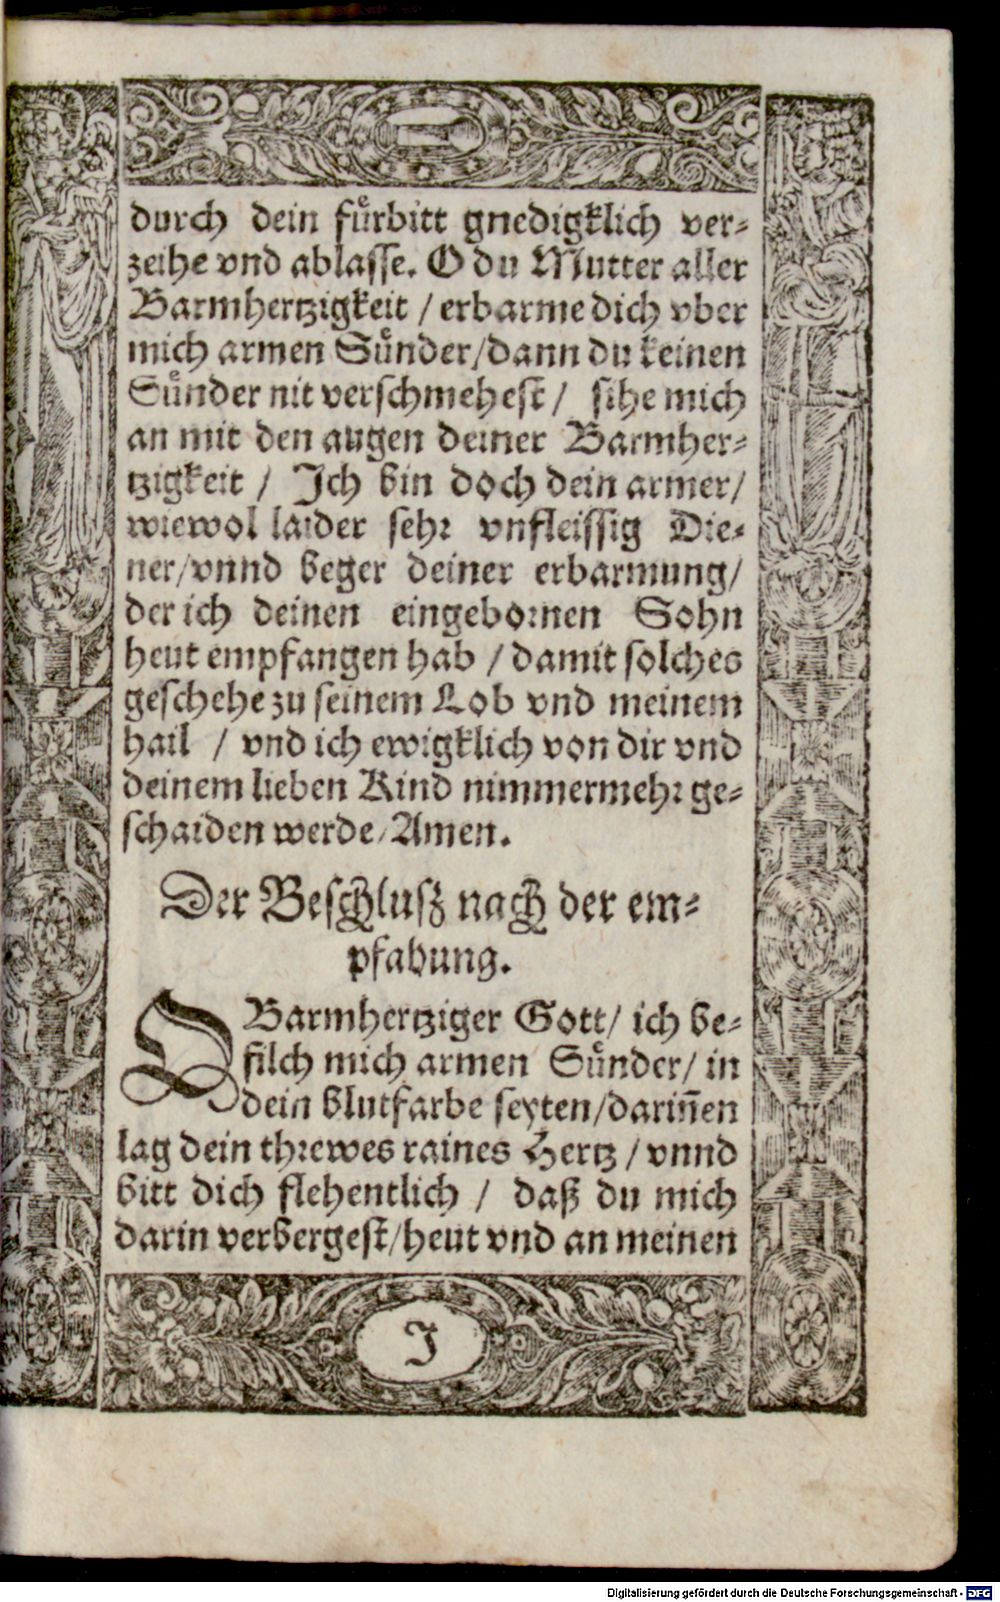 durch dein fuͤrbitt gnedigklich ver-
zeihe vnd ablasse. O du Mutter aller
Barmhertzigkeit / erbarme dich vber
mich armen Suͤnder / dann du keinen
Suͤnder nit verschmehest / sihe mich
an mit den augen deiner Barmher-
tzigkeit / Ich bin doch dein armer /
wiewol laider sehr vnfleissig Die-
ner / vnnd beger deiner erbarmung /
der ich deinen eingebornen Sohn
heut empfangen hab / damit solches
geschehe zu seinem Lob vnd meinem
hail / vnd ich ewigklich von dir vnd
deinem lieben Kind nimmermehr ge-
schaiden werde / Amen.
Der Beschlusz nach der em-
pfahung.
O Barmhertziger Gott / ich be-
filch mich armen Suͤnder / in
dein blutfarbe seyten / darin̄en
lag dein threwes raines Hertz / vnnd
bitt dich flehentlich / daß du mich
darin verbergest / heut vnd an meinen
J
Digitalisierung gefördert durch die Deutsche Forschungsgemeinschaft - DFG